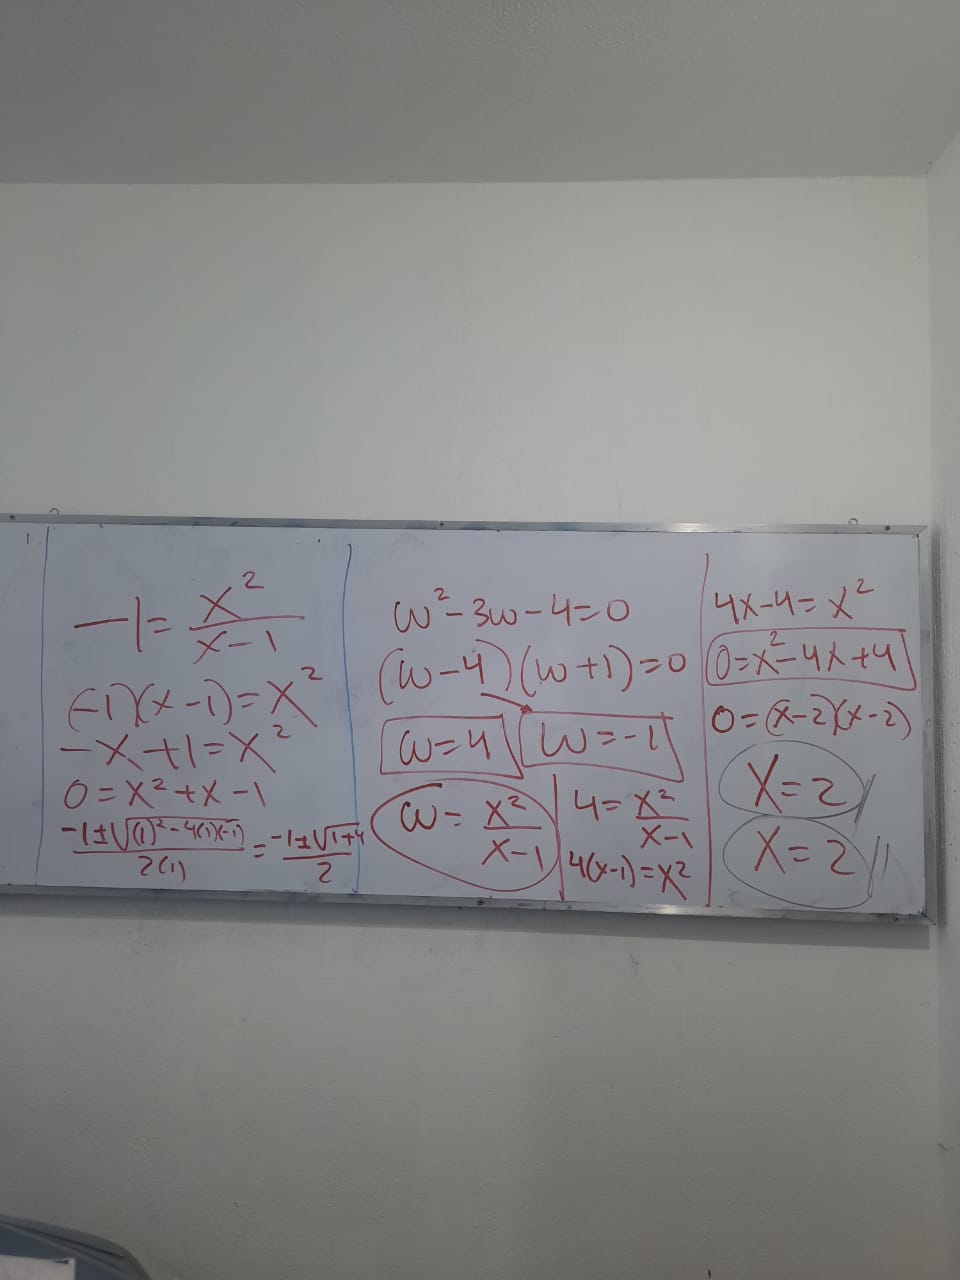 -1 = x²/(x-1)
(-1)(x-1) = x²
-x+1 = x²
0 = x²+x-1
(-1±√((1)²-4(1)(-1)))/2(1) = (-1±√(1+4))/2
ω²-3ω-4=0
(ω-4)(ω+1)=0
ω=4 ω=-1
ω = x²/(x-1)
4 = x²/(x-1)
4(x-1)=x²
4x-4=x²
0=x²-4x+4
0=(x-2)(x-2)
x=2
x=2